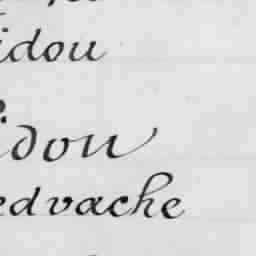 idou
idou
edvache